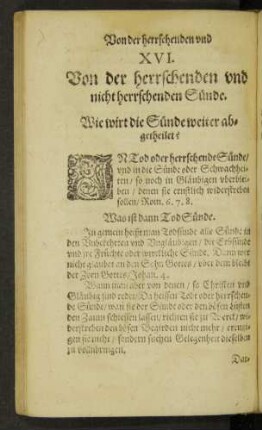 Von der herrschenden vnd
XVI.
Von der herrschenden vnd
nicht herrschenden Sünde.
Wie wirt die Sünde weiter ab-
getheilet?
IN Tod oder herrschende Sünde/
vnd in die Sünde oder Schwachhei-
ten/ so noch in Gläubigen vberblei-
ben/ denen sie ernstlich widerstreben
sollen/ Rom. 6. 7. 8.
Was ist dann Tod Sünde.
In gemein heißt man Todsünde alle Sünde in
den Vnbekehrten vnd Vngläubigen/ die Erbsünde
vnd ire Früchte oder wirckliche Sünde. Dann wer
nicht glaubet an den Sohn Gottes/ vber dem bleibt
der Zorn Gottes/ Johan.
Wann man aber von denen/ so Christen vnd
Gläubig sind redet/ Da heissen Tod oder herrschen-
de Sünde/ wan sie der Sünde oder den bösen Lüsten
den Zaum schiessen lassen/ richten sie zu Werck/ wi-
derstreben den bösen Begirden nicht mehr/
sie nicht/ sondern suchen Gelegenheit dieselben
zu vollbringen.